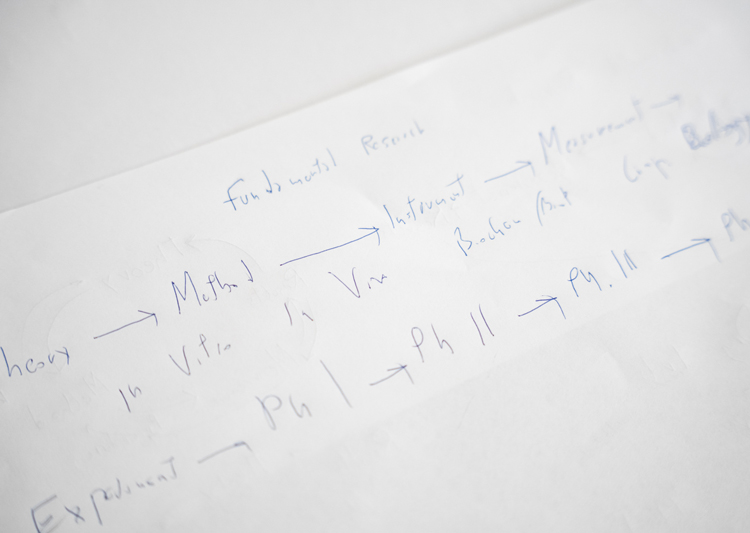 Fundamental Research
heory → Method → Instrument → Measurement →
In Vitro In Vivo Comp. Biology
Experiment → Ph I → Ph II → Ph. III → Ph